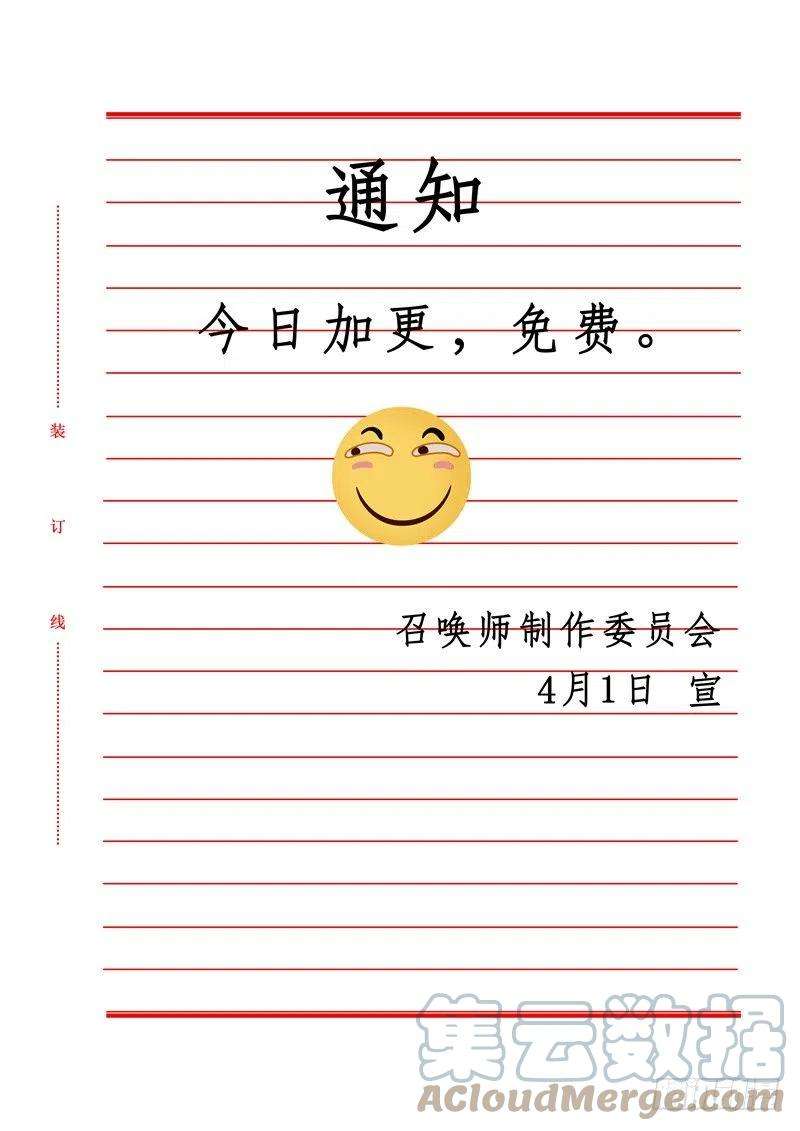 通知
今日加更，免费。
装
订
线
召唤师制作委员会
4月1日 宣
集云数据
ACloudMerge.com